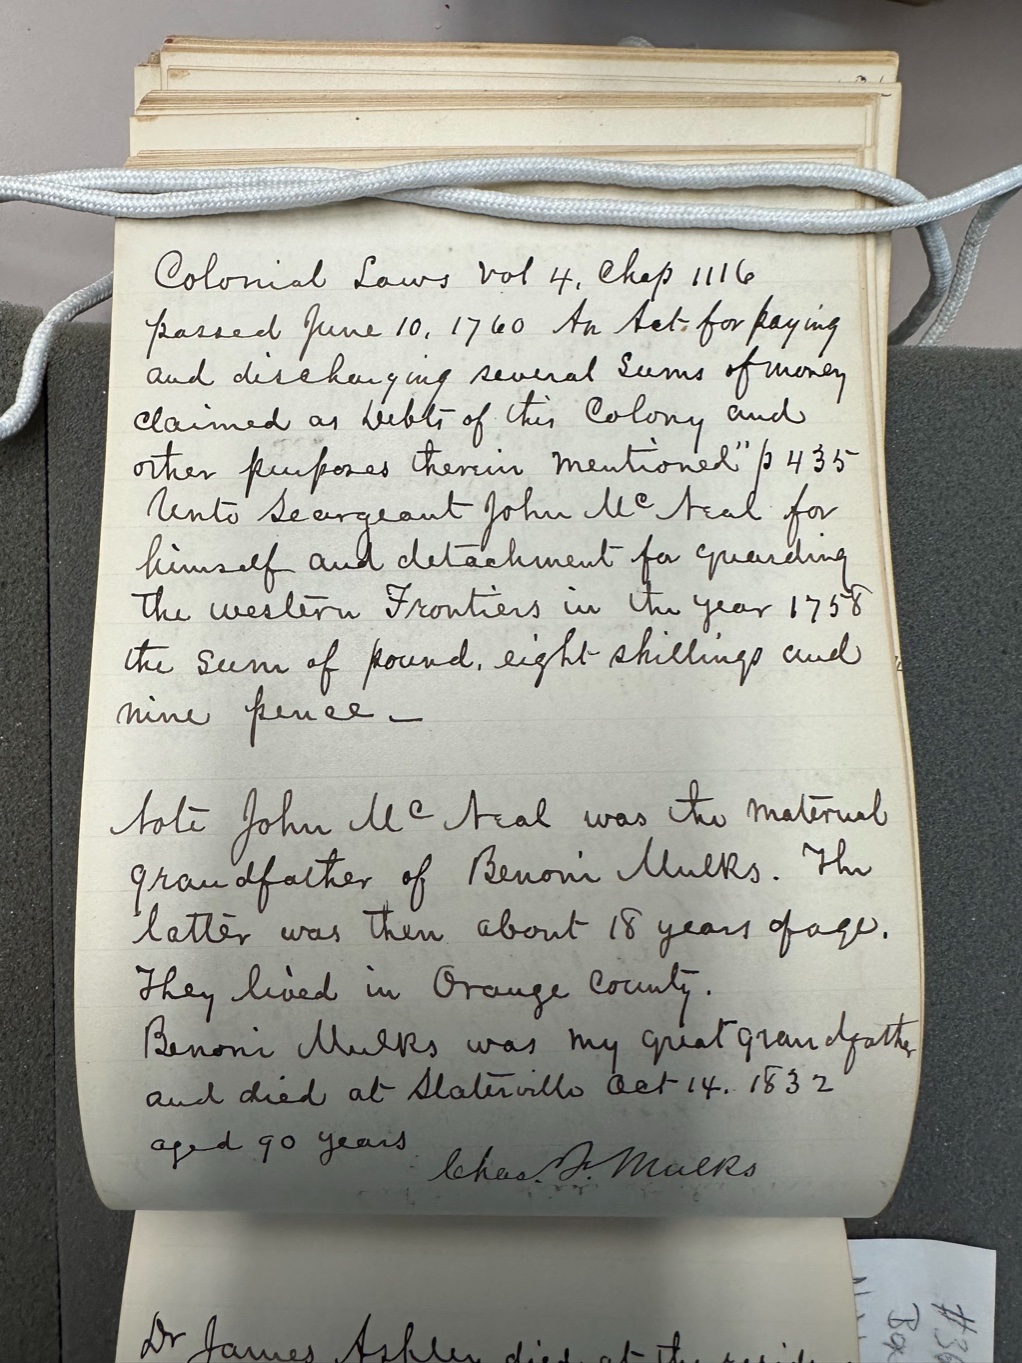 Colonial Laws Vol 4, Chap 1116
passed June 10, 1760 An Act for paying
and discharging several Sums of money
claimed as Debts of this Colony and
other purposes therein mentioned" p 435
Unto Seargeant John Mc Neal for
himself and detachment for guarding
the western Frontiers in the year 1758
the sum of pound, eight shillings and
nine pence —
Note John Mc Neal was the maternal
grandfather of Benoni Mulks. The
latter was then about 18 years of age.
They lived in Orange County.
Benoni Mulks was my great grandfather
and died at Slaterville Oct 14. 1832
aged 90 years
Chas. F. Mulks
Dr James Ashley died at the
Box